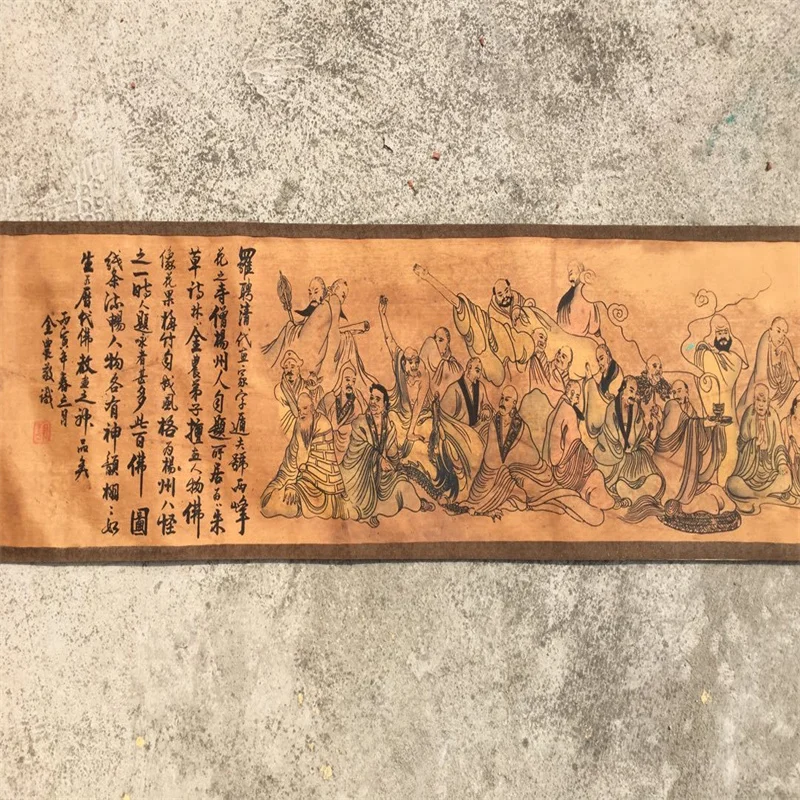 羅聘清代畫家字遁夫號两峰
花之寺僧揚州人自題所居曰朱
草詩林金農弟子擅画人物佛
像花果梅竹自成風格為揚州八怪
之一時人題咏者甚多此百佛圖
线条流暢人物各有神韻栩々如
生乃歷代佛教画之神品矣
丙寅年春三月
金農敬識